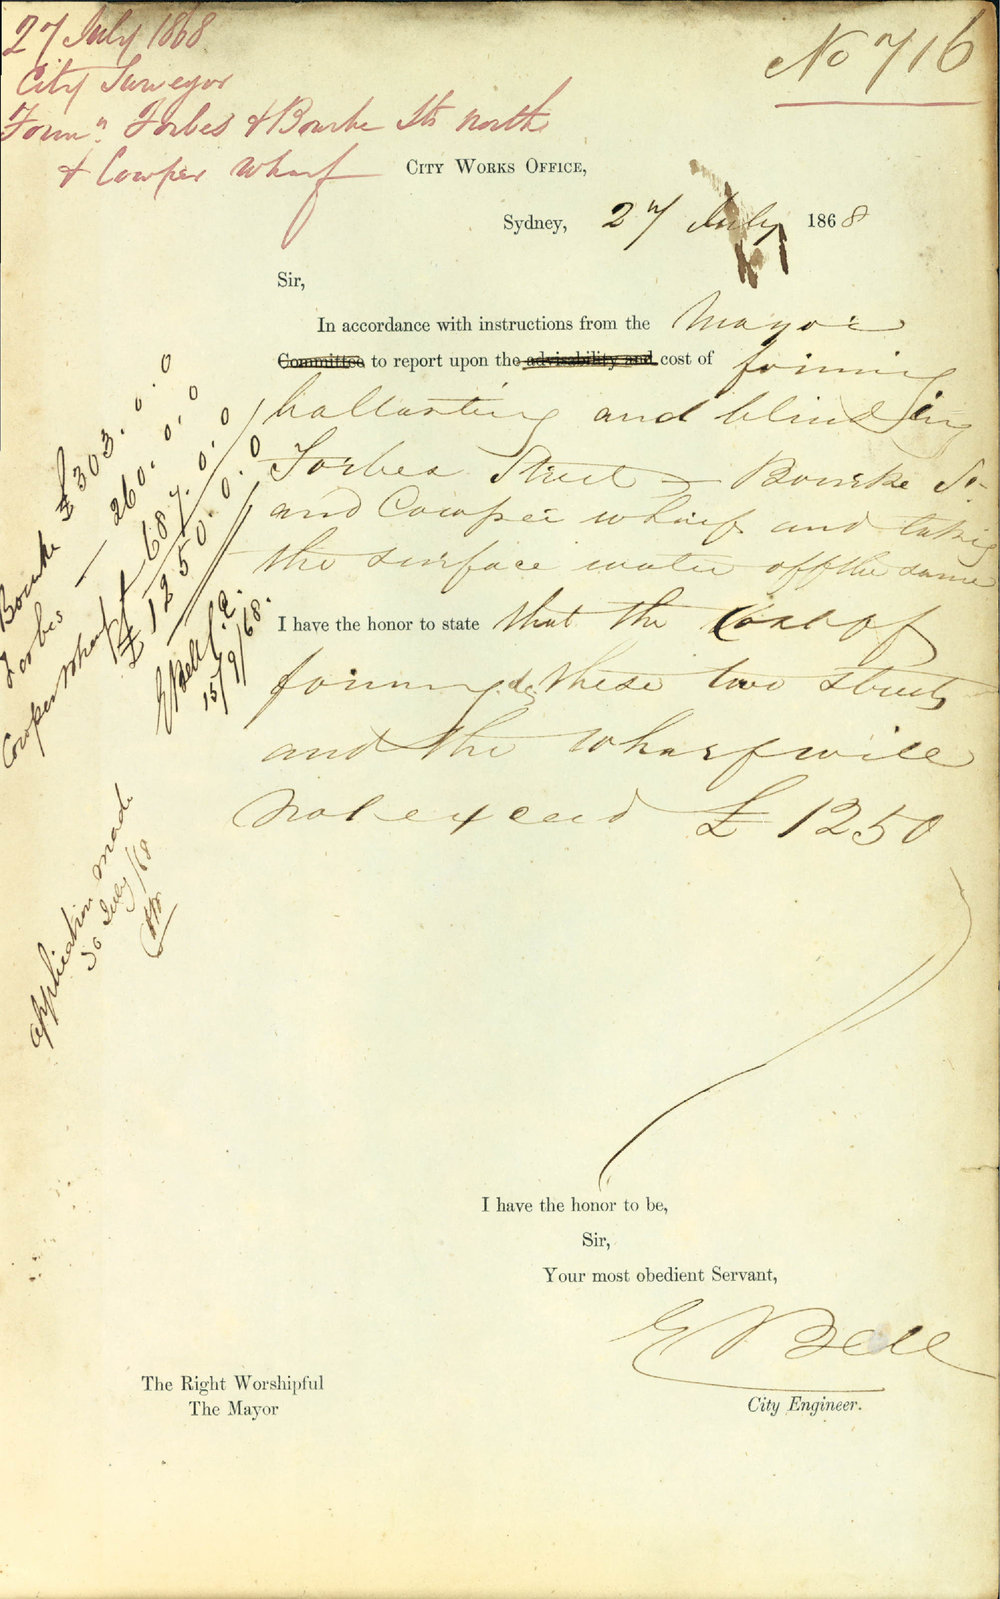 27 July 1868
City Surveyor
Formn. Forbes & Bourke Sts north
& Cowper Wharf
No 716
CITY WORKS OFFICE,
Sydney, 27 July 1868
Sir,
In accordance with instructions from the Mayor
Committee to report upon the advisability and cost of forming
ballasting and blinding
Forbes Street & Bourke St
and Cowper wharf and taking
the surface water off the same
I have the honor to state that the Cost of
forming &c these two streets
and the wharf will
not exceed £1250
Bourke £303.0.0
Forbes — 260.0.0
Cowper Wharf 687.0.0
£1250.0.0
E Bell C.E.
15/9/68.
application made
30 July/68
I have the honor to be,
Sir,
Your most obedient Servant,
E Bell
City Engineer.
The Right Worshipful
The Mayor